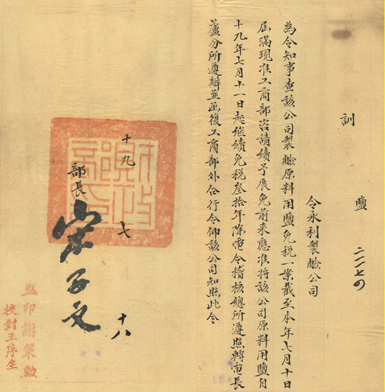 訓
鹽
令永利製鹼公司
為令知事查該公司製鹼原料用鹽免税一案截至本年七月十日
屆滿現准工商部咨請續予展免前來應准將該公司原料用鹽自
十九年七月十一日起繼續免税叁拾年除電令稽核總所遵照轉電長
蘆分所遵辦並函復工商部外合行令仰該公司知照此令
十九 七 十八
部長宋子文
財政部印
監印謝榮
校對王序